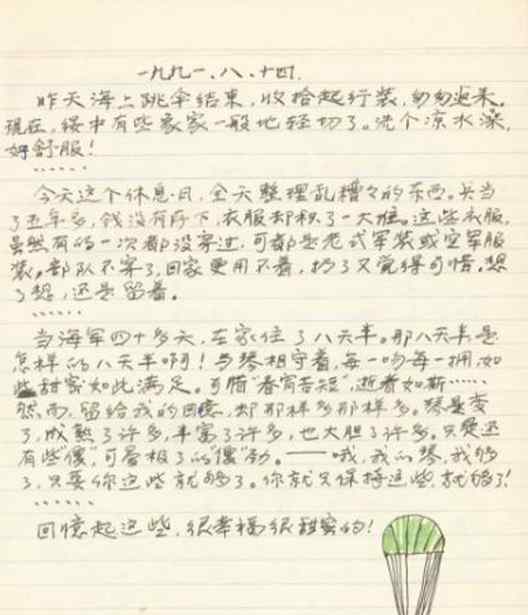 一九九一.八.十四.
昨天海上跳伞结束,收拾起行装,匆匆返来。
现在,绥中有些象家一般地轻切了。洗个凉水澡,
好舒服!
……
今天这个休息日,全天整理乱糟々的东西。兵当
了五年多,钱没有存下,衣服却积了一大堆。这些衣服,
虽然有的一次都没穿过,可都是老式军装或空军服
装。部队不穿了,回家更用不着,扔了又觉得可惜。想
了想,还是留着。
……
当海军四十多天,在家住了八天半。那八天半是
怎样的八天半啊!与琴相守着,每一吻每一拥,如
此甜蜜如此满足。可惜"春宵苦短",逝者如斯……
然而,留给我的回憶,却那样多那样多。琴是变
了,成熟了许多,丰富了许多,也大胆了许多。只是还
有些"傻",可爱极了的"傻"劲。——哦,我的琴,我够
了,只要你这些就够了。你就只保持这些,就够了!
……
回憶起这些,很幸福很甜蜜的!